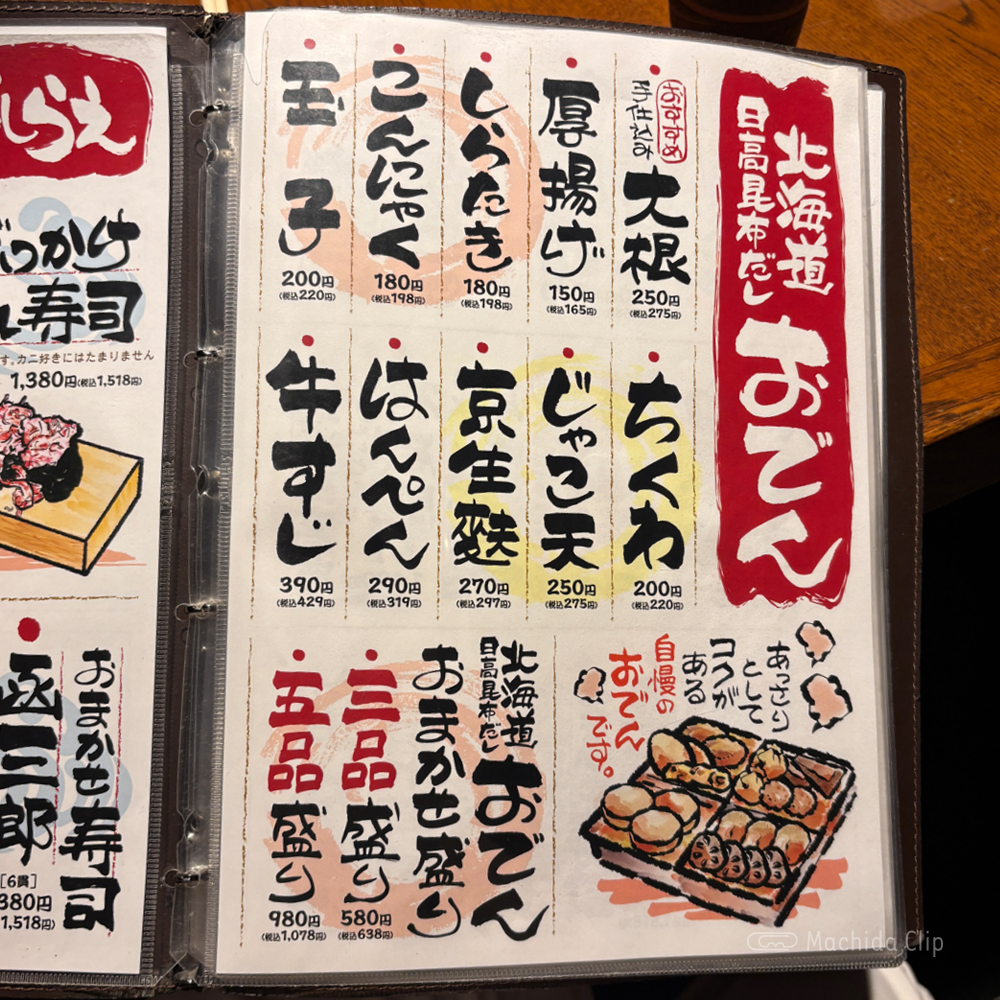 北海道
日高昆布だし
おでん
おすすめ
手仕込み
大根
250円
(税込275円)
厚揚げ
150円
(税込165円)
しらたき
180円
(税込198円)
こんにゃく
180円
(税込198円)
玉子
200円
(税込220円)
ちくわ
200円
(税込220円)
じゃこ天
250円
(税込275円)
京生麩
270円
(税込297円)
はんぺん
290円
(税込319円)
牛すじ
390円
(税込429円)
あっさり
として
コクが
ある
自慢の
おでん
です。
北海道
日高昆布だし
おでん
おまかせ盛り
三品盛り
580円
(税込638円)
五品盛り
980円
(税込1,078円)
らえ
っかけ
寿司
す。カニ好きにはたまりません
1,380円(税込1,518円)
おまかせ寿司
函三郎
[6貫]
380円
1,518円)
Machida Clip